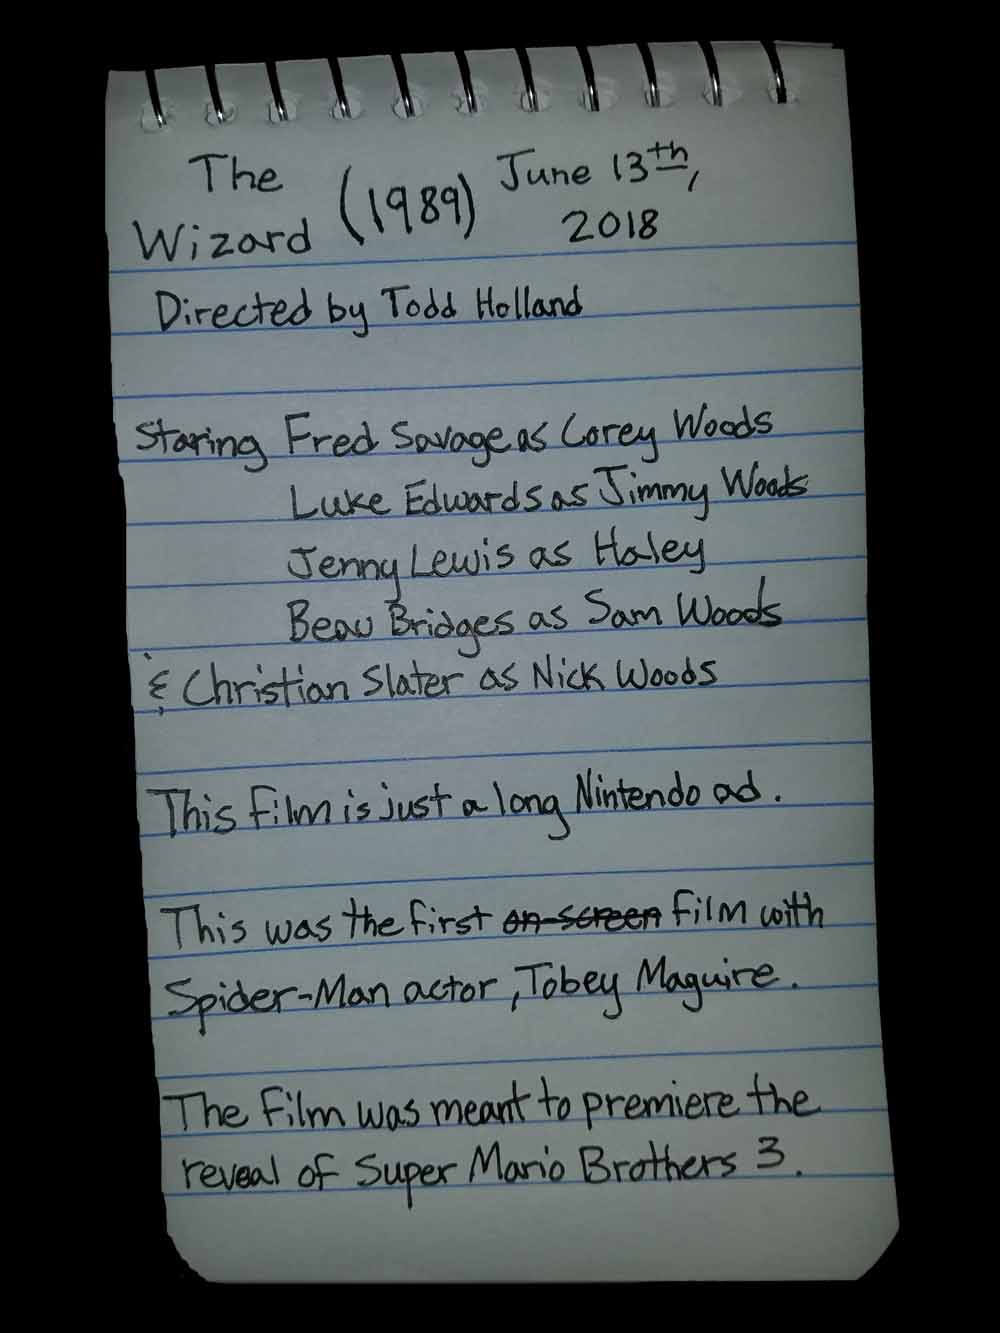 The Wizard (1989) June 13th, 2018
Directed by Todd Holland
Staring Fred Savage as Corey Woods
Luke Edwards as Jimmy Woods
Jenny Lewis as Haley
Beau Bridges as Sam Woods
& Christian Slater as Nick Woods
This film is just a long Nintendo ad.
This was the first on-screen film with
Spider-Man actor, Tobey Maguire.
The film was meant to premiere the
reveal of Super Mario Brothers 3.